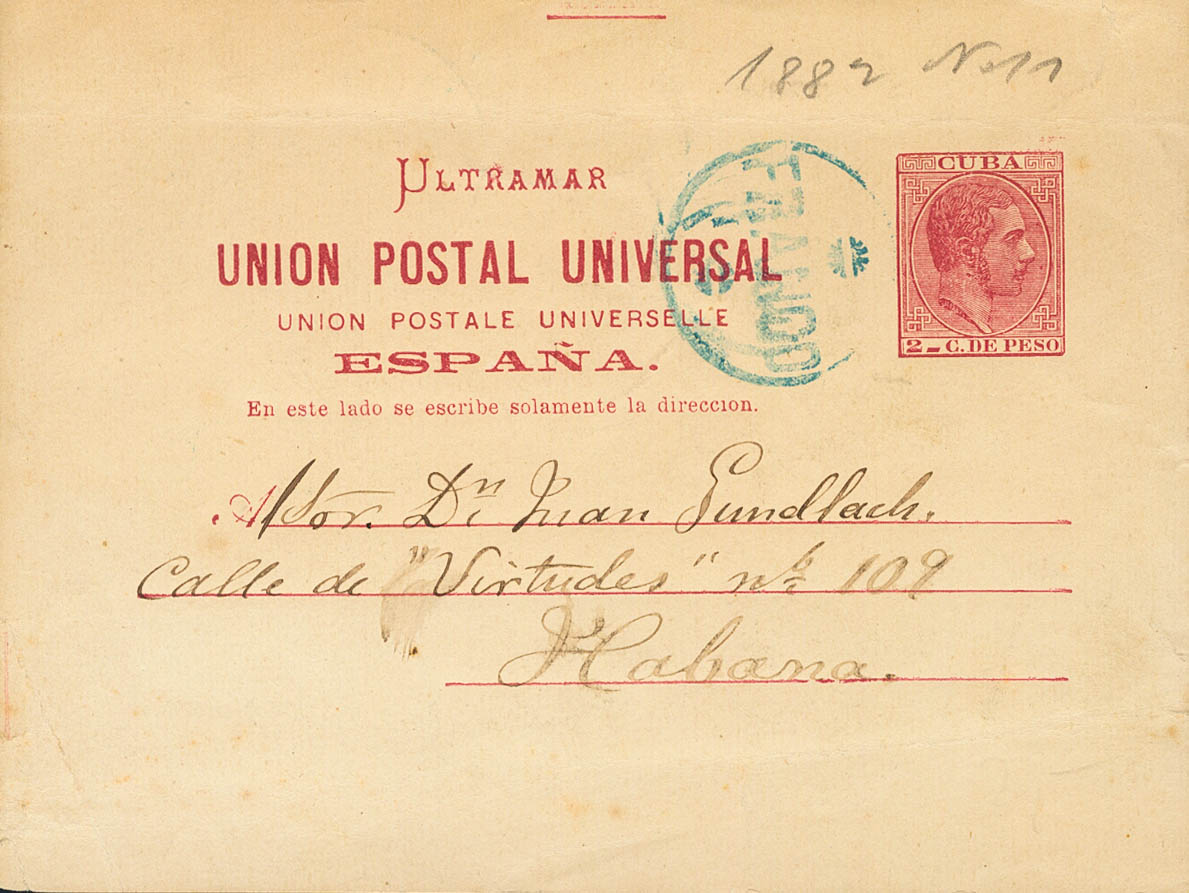 1882 No 11
ULTRAMAR
CUBA
UNION POSTAL UNIVERSAL
FRANCO
UNION POSTALE UNIVERSELLE
ESPAÑA.
2 - C. DE PESO
En este lado se escribe solamente la direccion.
A Sor. Dn Juan Gundlach.
Calle de "Virtudes" no 109
Habana.